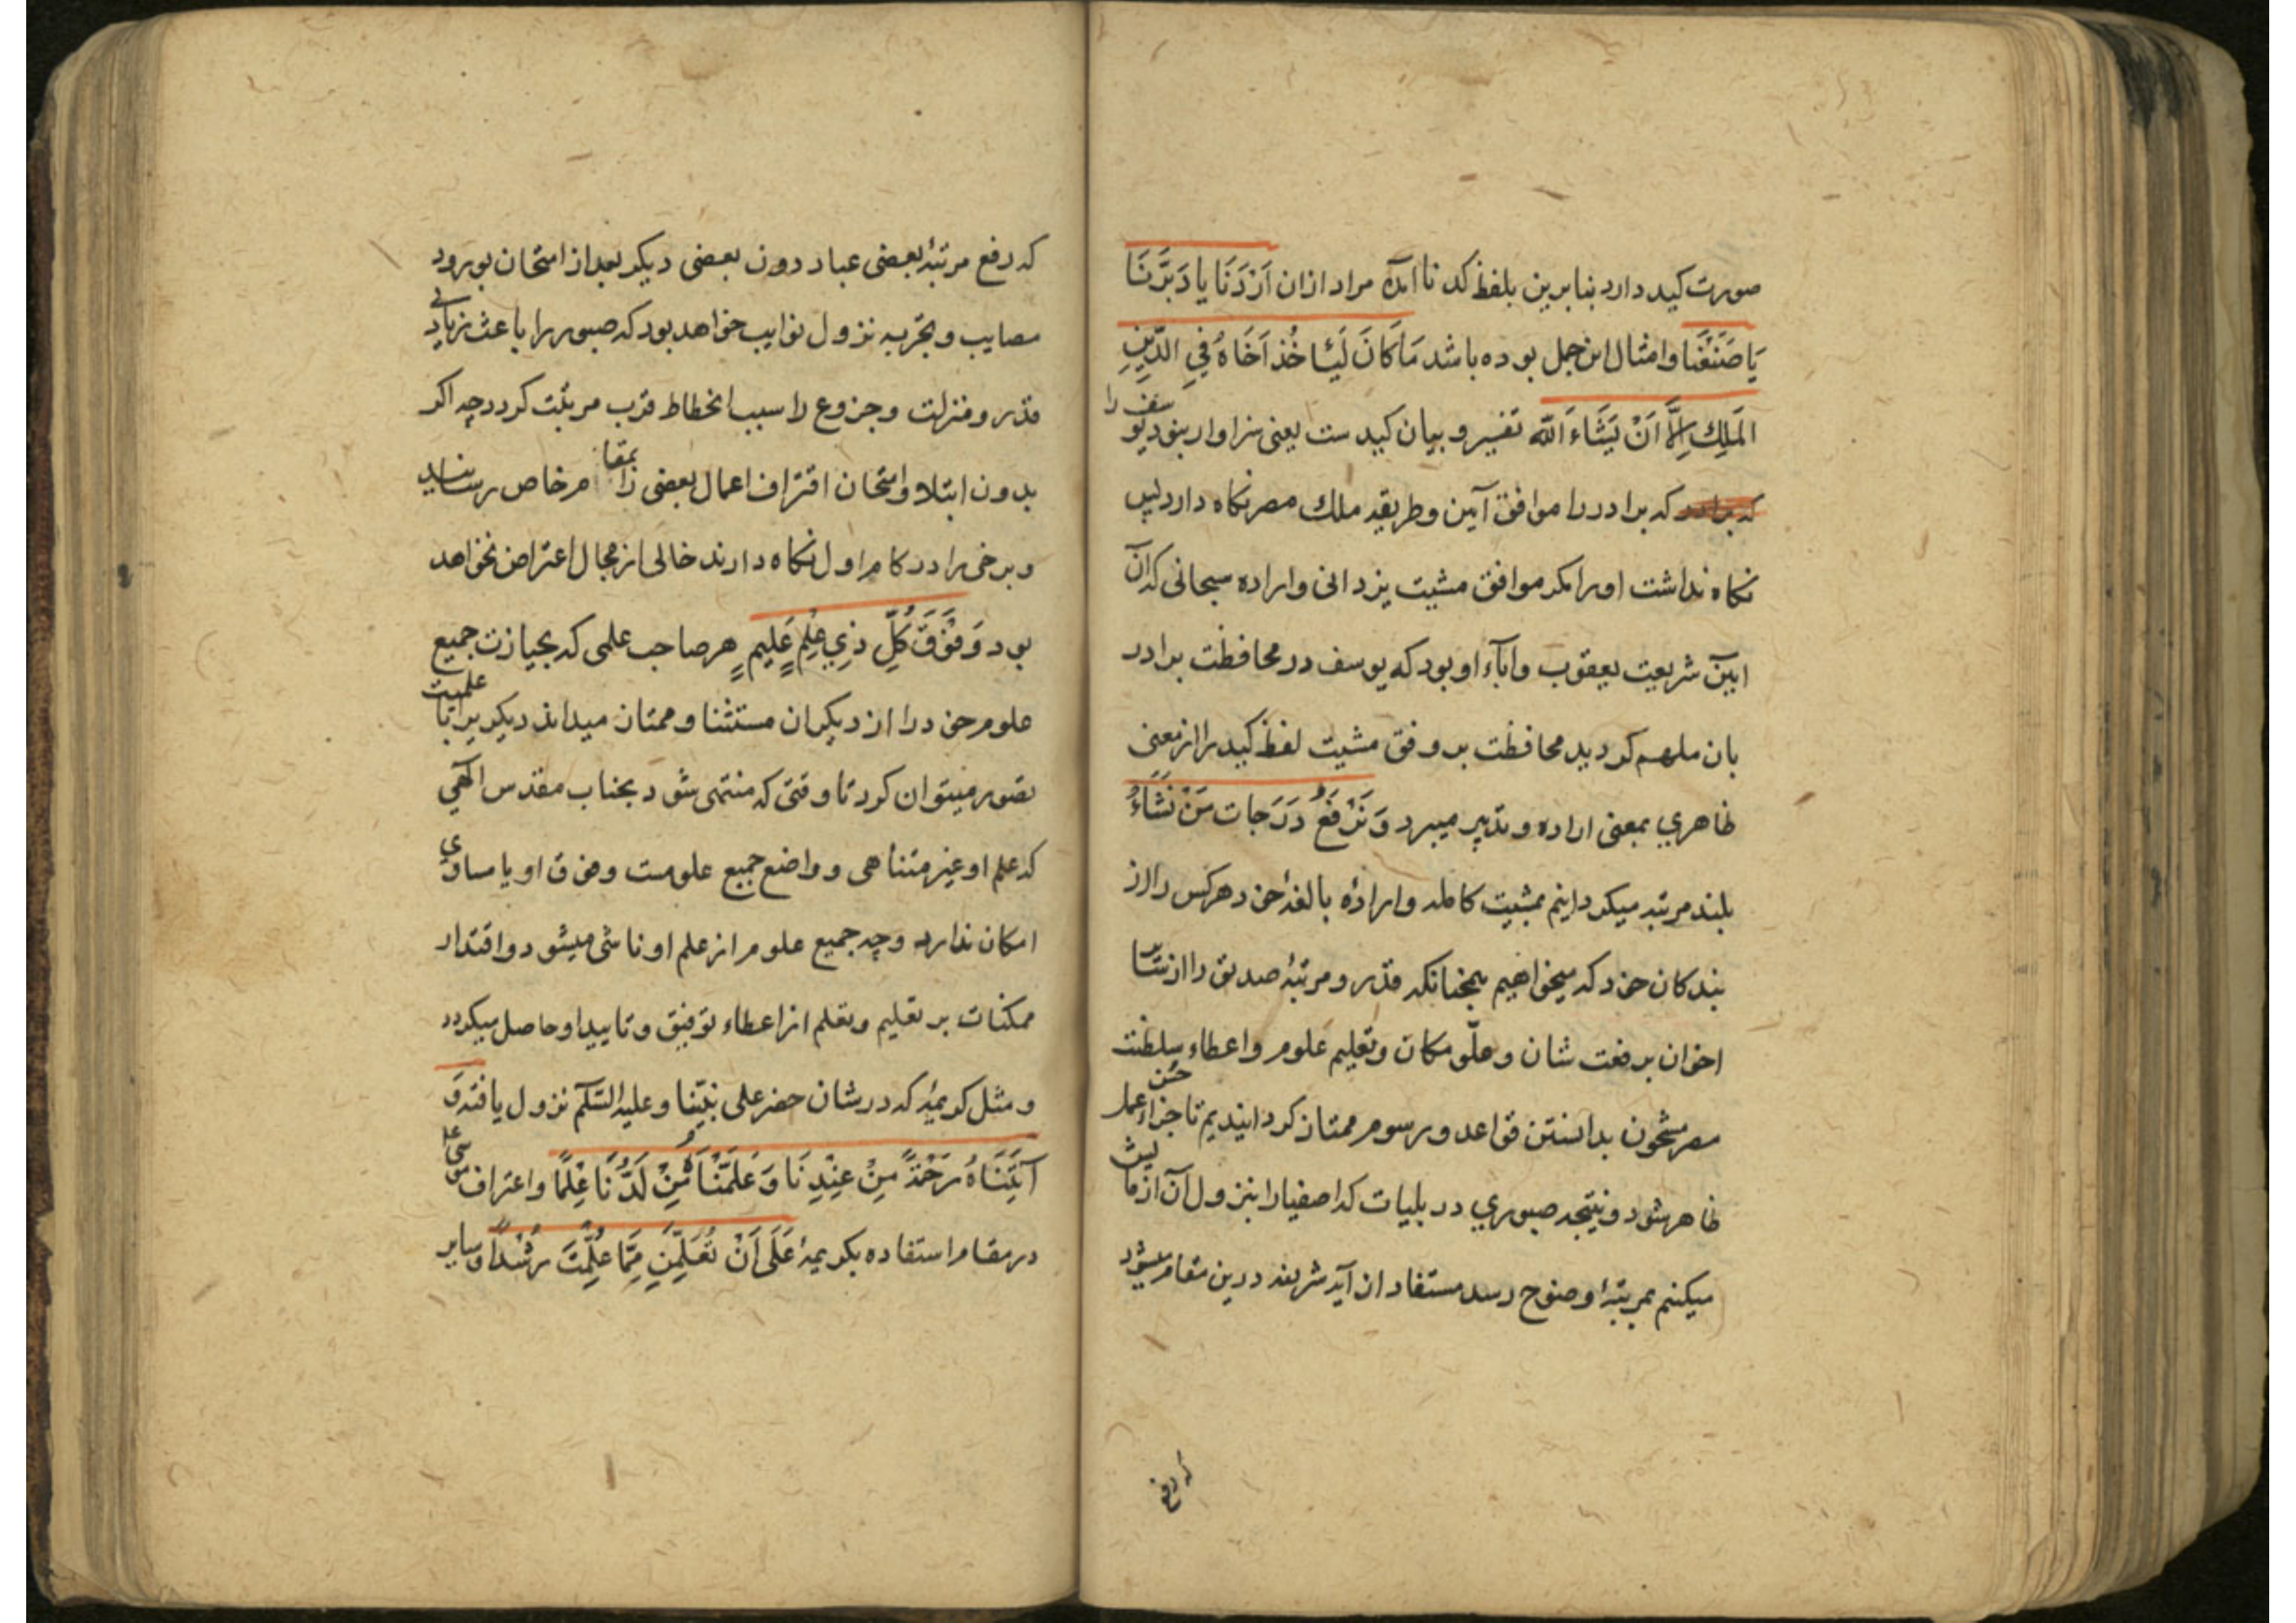 صورت کید دارد بنابرین بلفظ کدنا آمده مراد ازان اَرَدْنَا یا دَبَّرنَا
یَا صَنَعْنَا وامثال این جمل بوده باشد مَا كَانَ لَيَاخُذَ اَخَاهُ فِي الدِّينِ
المَلِكِ اِلَّا اَنْ يَشَاءَ اَللّٰه تفسیر و بیان کیدست یعنی سزاوار بنود یوسف را
که برادر را موافق آیین وطریقه ملک مصر نکاه دارد پس
نکاه نداشت اورا مکر موافق مشیت یزدانی واراده سبحانی که آن
ایین شریعت یعقوب واباء او بود که یوسف در محافظت برادر
بان ملهم کردید محافظت بر وفق مشیت لفظ کید را از معنی
ظاهری بمعنی اراده و تدبیر میبرد وَ نَرْفَعُ دَرَجات مَنْ نَشَاءُ
بلند مرتبه میکردانیم بمشیت کامله وارادهٔ بالغهٔ خود هرکس را از
بندکان خود که میخواهیم همچنانکه قدر و مرتبهٔ صدیق را از سایر
اخوان برفعت شان وعلّو مکان وتعلیم علوم واعطاء سلطنت
مصر مشحون بدانستن قواعد ورسوم ممتاز کردانیدیم تا جزاء حسن عمل
ظاهر شود ونتیجه صبوری در بلیات که اصفیا را بنزول آن ازمایش
میکنیم بمرتبهٔ وضوح رسد مستفاد از آیه شریفه درین مقام میشود
که رفع
که رفع مرتبهٔ بعضی عباد دون بعضی دیکر بعد از امتحان بورود
مصایب وتجربه نزول نوایب خواهد بود که صبور را باعث زیادتی
قدر ومنزلت وجزوع را سبب انحطاط قرب مرتبت کردد چه اکر
بدون ابتلا وامتحان اقتراف اعمال بعضی را بمقام خاص رسانید
وبرخی را در کام اول نکاه دارند خالی از مجال اعتراض نخواهد
بود وَ فَوْقَ كُلِّ ذِي عِلْمٍ عَلِيمٍ هر صاحب علمی که بحیازت جمیع
علوم خود را از دیکران مستثنا و ممتاز میداند دیکری برا با علمیت
تصور میتوان کرد تا وقتی که منتهی شود بجناب مقدس الهی
که علم او غیر متناهی و واضع جمیع علومست وفوق او یا مساوی
امکان ندارد وچه جمیع علوم از علم او ناشی میشود واقتدار
ممکنات بر تعلیم وتعلم از اعطاء توفیق وتایید او حاصل میکردد
ومثل کریمهٔ که در شان حضر علی نبیّنا وعلیه السّلام نزول یافته وَ
آتَيْنَاهُ رَحْمَةً مِنْ عِنْدِنَا وَ عَلَّمْنَاهُ مِنْ لَدُنَّا عِلْمًا واعتراف موسی
در مقام استفاده بکریمهٔ عَلَى اَنْ تُعَلِّمَنِ مِمَّا عُلِّمْتَ رُشْداً وسایر